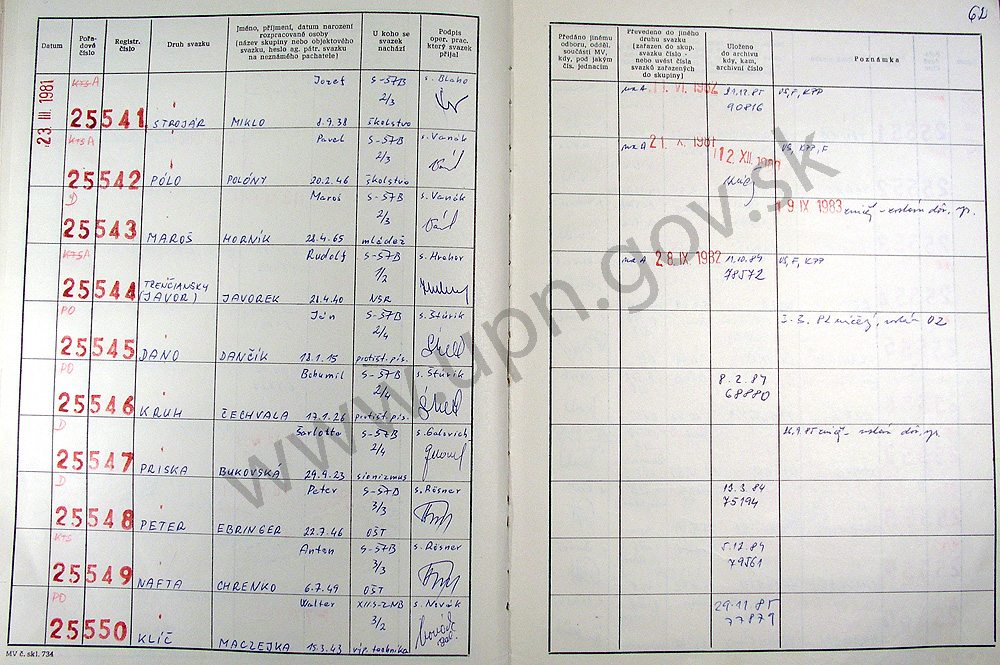 62
Datum
Pořadové číslo
Registr. číslo
Druh svazku
Jméno, příjmení, datum narození
rozpracované osoby
(název skupiny nebo objektového
svazku, heslo ag. pátr. svazku
na neznámého pachatele)
U koho se
svazek
nachází
Podpis
oper. prac.
který svazek
přijal
Předáno jinému
odboru, odděl.
součásti MV,
kdy, pod jakým
čís. jednacím
Převedeno do jiného
druhu svazku
(zařazen do skup.
svazku číslo -
nebo uvést čísla
svazků zařazených
do skupiny)
Uloženo
do archivu
kdy, kam,
archivní číslo
Poznámka
23 III 1981
KTS A Jozef S-ŠTB s. Blaho
2/3
25541 STROJÁR MIKLO 8.9.38 školstvo
11. VI. 1982 90816 VS, F, KPP
KTS A Pavel S-ŠTB s. Vanák
2/3
25542 PÓLO POLÓNY 20.2.46 školstvo
21. X. 1981 12. XII. VS, KPP, F
D Maroš S-ŠTB s. Vanák
2/3
25543 MAROŠ HORNÍK 28.4.65 mládež
9 IX 1983
KTS A Rudolf S-ŠTB s. Hrehor
1/2
25544 TRENČIANSKY
(JAVOR) JAVOREK 21.4.40 NSR
28. IX. 1982 11.10.84 VS, F, KPP
78572
PO Ján S-ŠTB s. Štúrik
2/4
25545 DANO DANČÍK 18.1.15 protišt. pís.
PO Bohumil S-ŠTB s. Štúrik
2/4
25546 KRUH ČECHVALA 17.1.26 protišt. pís.
8.2.84
68880
D Šarlotta S-ŠTB s. Galovich
2/4
25547 PRISKA BUKOVSKA 29.9.23 sionizmus
D Peter S-ŠTB s. Rösner
3/3
25548 PETER EBRINGER 22.7.46 OŠT
13.3.84
75194
KTS Anton S-ŠTB s. Rösner
3/3
25549 NAFTA CHRENKO 6.7.49 OŠT
5.12.84
79561
PO Walter XII.S-ZNB s. Novák
3/2
25550 KLÍČ MACZEJKA 15.3.43 výp. technika
29.11.85
77879
MV č. skl. 734
www.upn.gov.sk